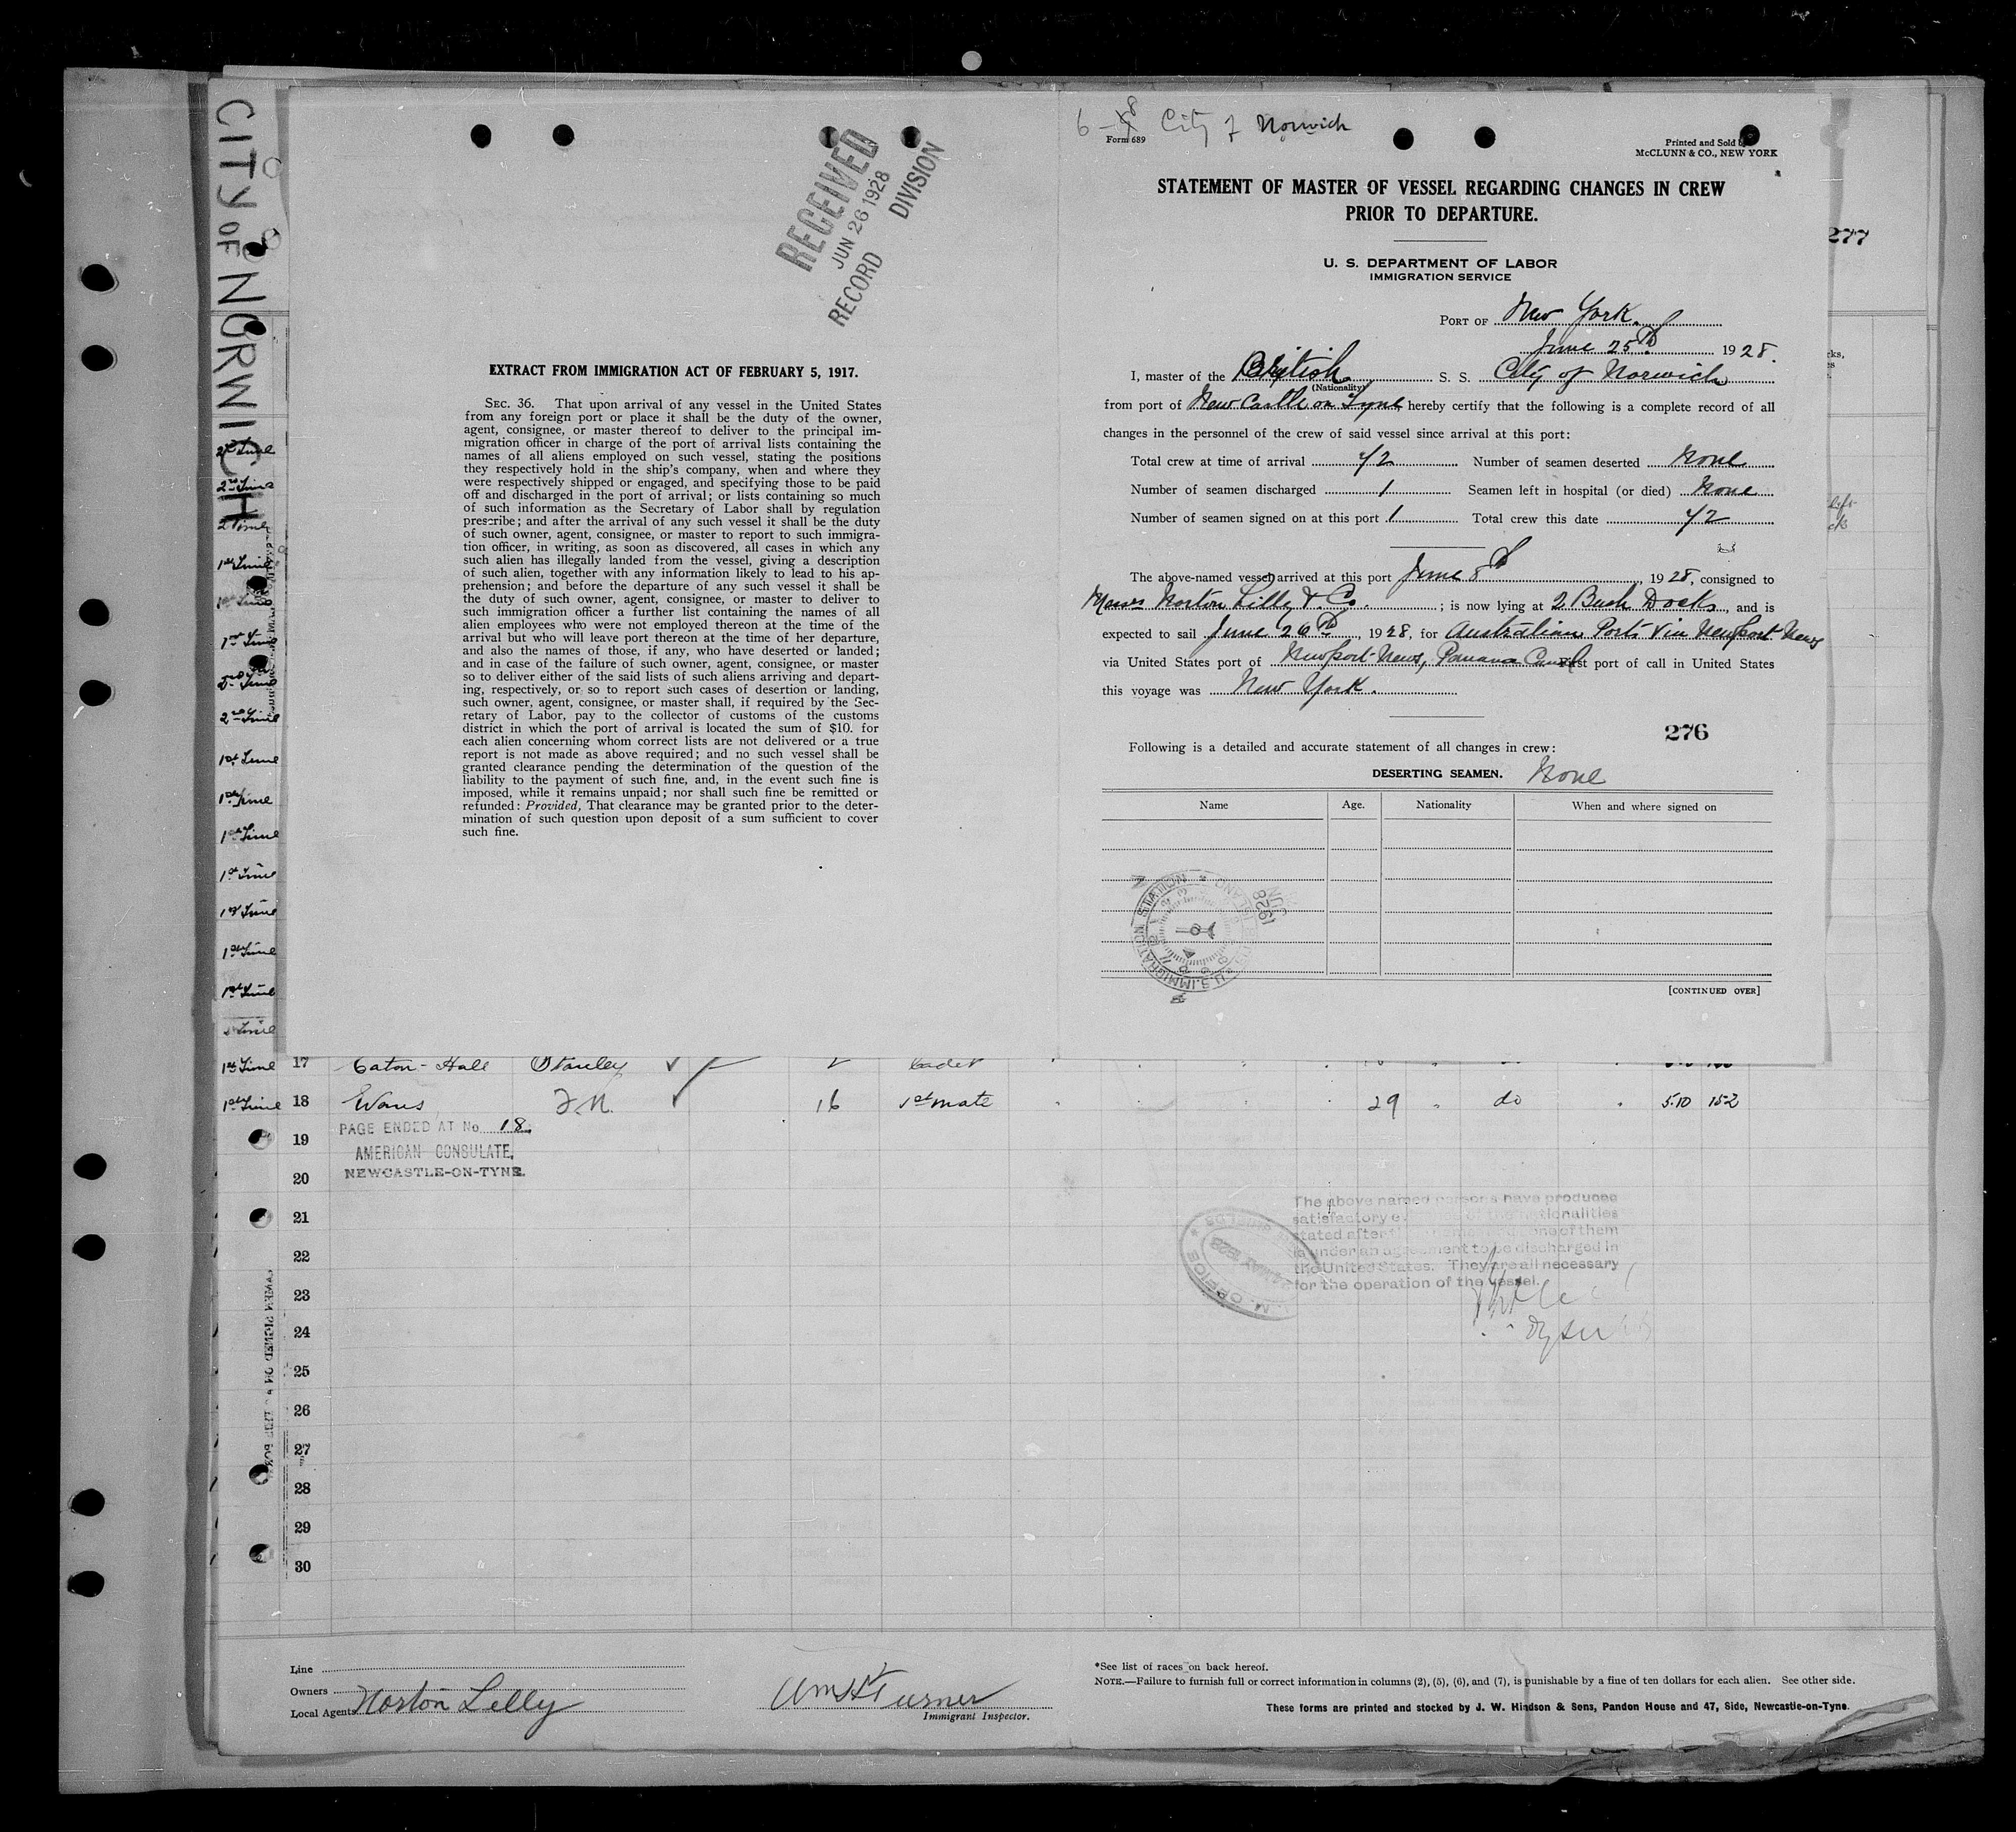 CITY OF NORWICH
RECEIVED
JUN 26 1928
RECORD DIVISION
EXTRACT FROM IMMIGRATION ACT OF FEBRUARY 5, 1917.
SEC. 36. That upon arrival of any vessel in the United States
from any foreign port or place it shall be the duty of the owner,
agent, consignee, or master thereof to deliver to the principal im-
migration officer in charge of the port of arrival lists containing the
names of all aliens employed on such vessel, stating the positions
they respectively hold in the ship's company, when and where they
were respectively shipped or engaged, and specifying those to be paid
off and discharged in the port of arrival; or lists containing so much
of such information as the Secretary of Labor shall by regulation
prescribe; and after the arrival of any such vessel it shall be the duty
of such owner, agent, consignee, or master to report to such immigra-
tion officer, in writing, as soon as discovered, all cases in which any
such alien has illegally landed from the vessel, giving a description
of such alien, together with any information likely to lead to his ap-
prehension; and before the departure of any such vessel it shall be
the duty of such owner, agent, consignee, or master to deliver to
such immigration officer a further list containing the names of all
alien employees who were not employed thereon at the time of the
arrival but who will leave port thereon at the time of her departure,
and also the names of those, if any, who have deserted or landed;
and in case of the failure of such owner, agent, consignee, or master
so to deliver either of the said lists of such aliens arriving and depart-
ing, respectively, or so to report such cases of desertion or landing,
such owner, agent, consignee, or master shall, if required by the Sec-
retary of Labor, pay to the collector of customs of the customs
district in which the port of arrival is located the sum of $10. for
each alien concerning whom correct lists are not delivered or a true
report is not made as above required; and no such vessel shall be
granted clearance pending the determination of the question of the
liability to the payment of such fine, and, in the event such fine is
imposed, while it remains unpaid; nor shall such fine be remitted or
refunded: Provided, That clearance may be granted prior to the deter-
mination of such question upon deposit of a sum sufficient to cover
such fine.
6-8 City of Norwich
Form 689
Printed and Sold by
McCLUNN & CO., NEW YORK
STATEMENT OF MASTER OF VESSEL REGARDING CHANGES IN CREW
PRIOR TO DEPARTURE.
U. S. DEPARTMENT OF LABOR
IMMIGRATION SERVICE
PORT OF New York.
June 25th 1928.
I, master of the British S. S. City of Norwich
(Nationality)
from port of New Castle on Tyne hereby certify that the following is a complete record of all
changes in the personnel of the crew of said vessel since arrival at this port:
Total crew at time of arrival 42 Number of seamen deserted None
Number of seamen discharged 1 Seamen left in hospital (or died) None
Number of seamen signed on at this port 1 Total crew this date 42
The above-named vessel arrived at this port June 8th, 1928, consigned to
Messrs Norton Lilly & Co. ; is now lying at 2 Bush Docks, and is
expected to sail June 26th, 1928, for Australian Ports Via Newport News
via United States port of Newport News, Panama Canal First port of call in United States
this voyage was New York.
276
Following is a detailed and accurate statement of all changes in crew:
DESERTING SEAMEN. None
Name Age. Nationality When and where signed on
U.S. IMMIGRATION STATION
1928
[CONTINUED OVER]
277
2nd Time
2nd Time
2 Time
1st Time
1st Time
1st Time
2nd Time
2nd Time
1st Time
1st Time
1st Time
1st Time
1st Time
1st Time
1st Time
Time
1st Time 17 Eaton-Hall Stanley 2 Cadet
1st Time 18 Evans 16 1st mate 29 do 5.10 152
PAGE ENDED AT No. 18.
19
AMERICAN CONSULATE,
NEWCASTLE-ON-TYNE.
20
The above named persons have produced
satisfactory evidence of the nationalities
21
22
the United States. They are all necessary
for the operation of the vessel.
M. OFFICE
MAY 1928
23
24
25
26
27
28
29
30
Line
Owners
Local Agents Norton Lilly
Wm H Turner
Immigrant Inspector.
*See list of races on back hereof.
NOTE.—Failure to furnish full or correct information in columns (2), (5), (6), and (7), is punishable by a fine of ten dollars for each alien. See other side.
These forms are printed and stocked by J. W. Hindson & Sons, Pandon House and 47, Side, Newcastle-on-Tyne.